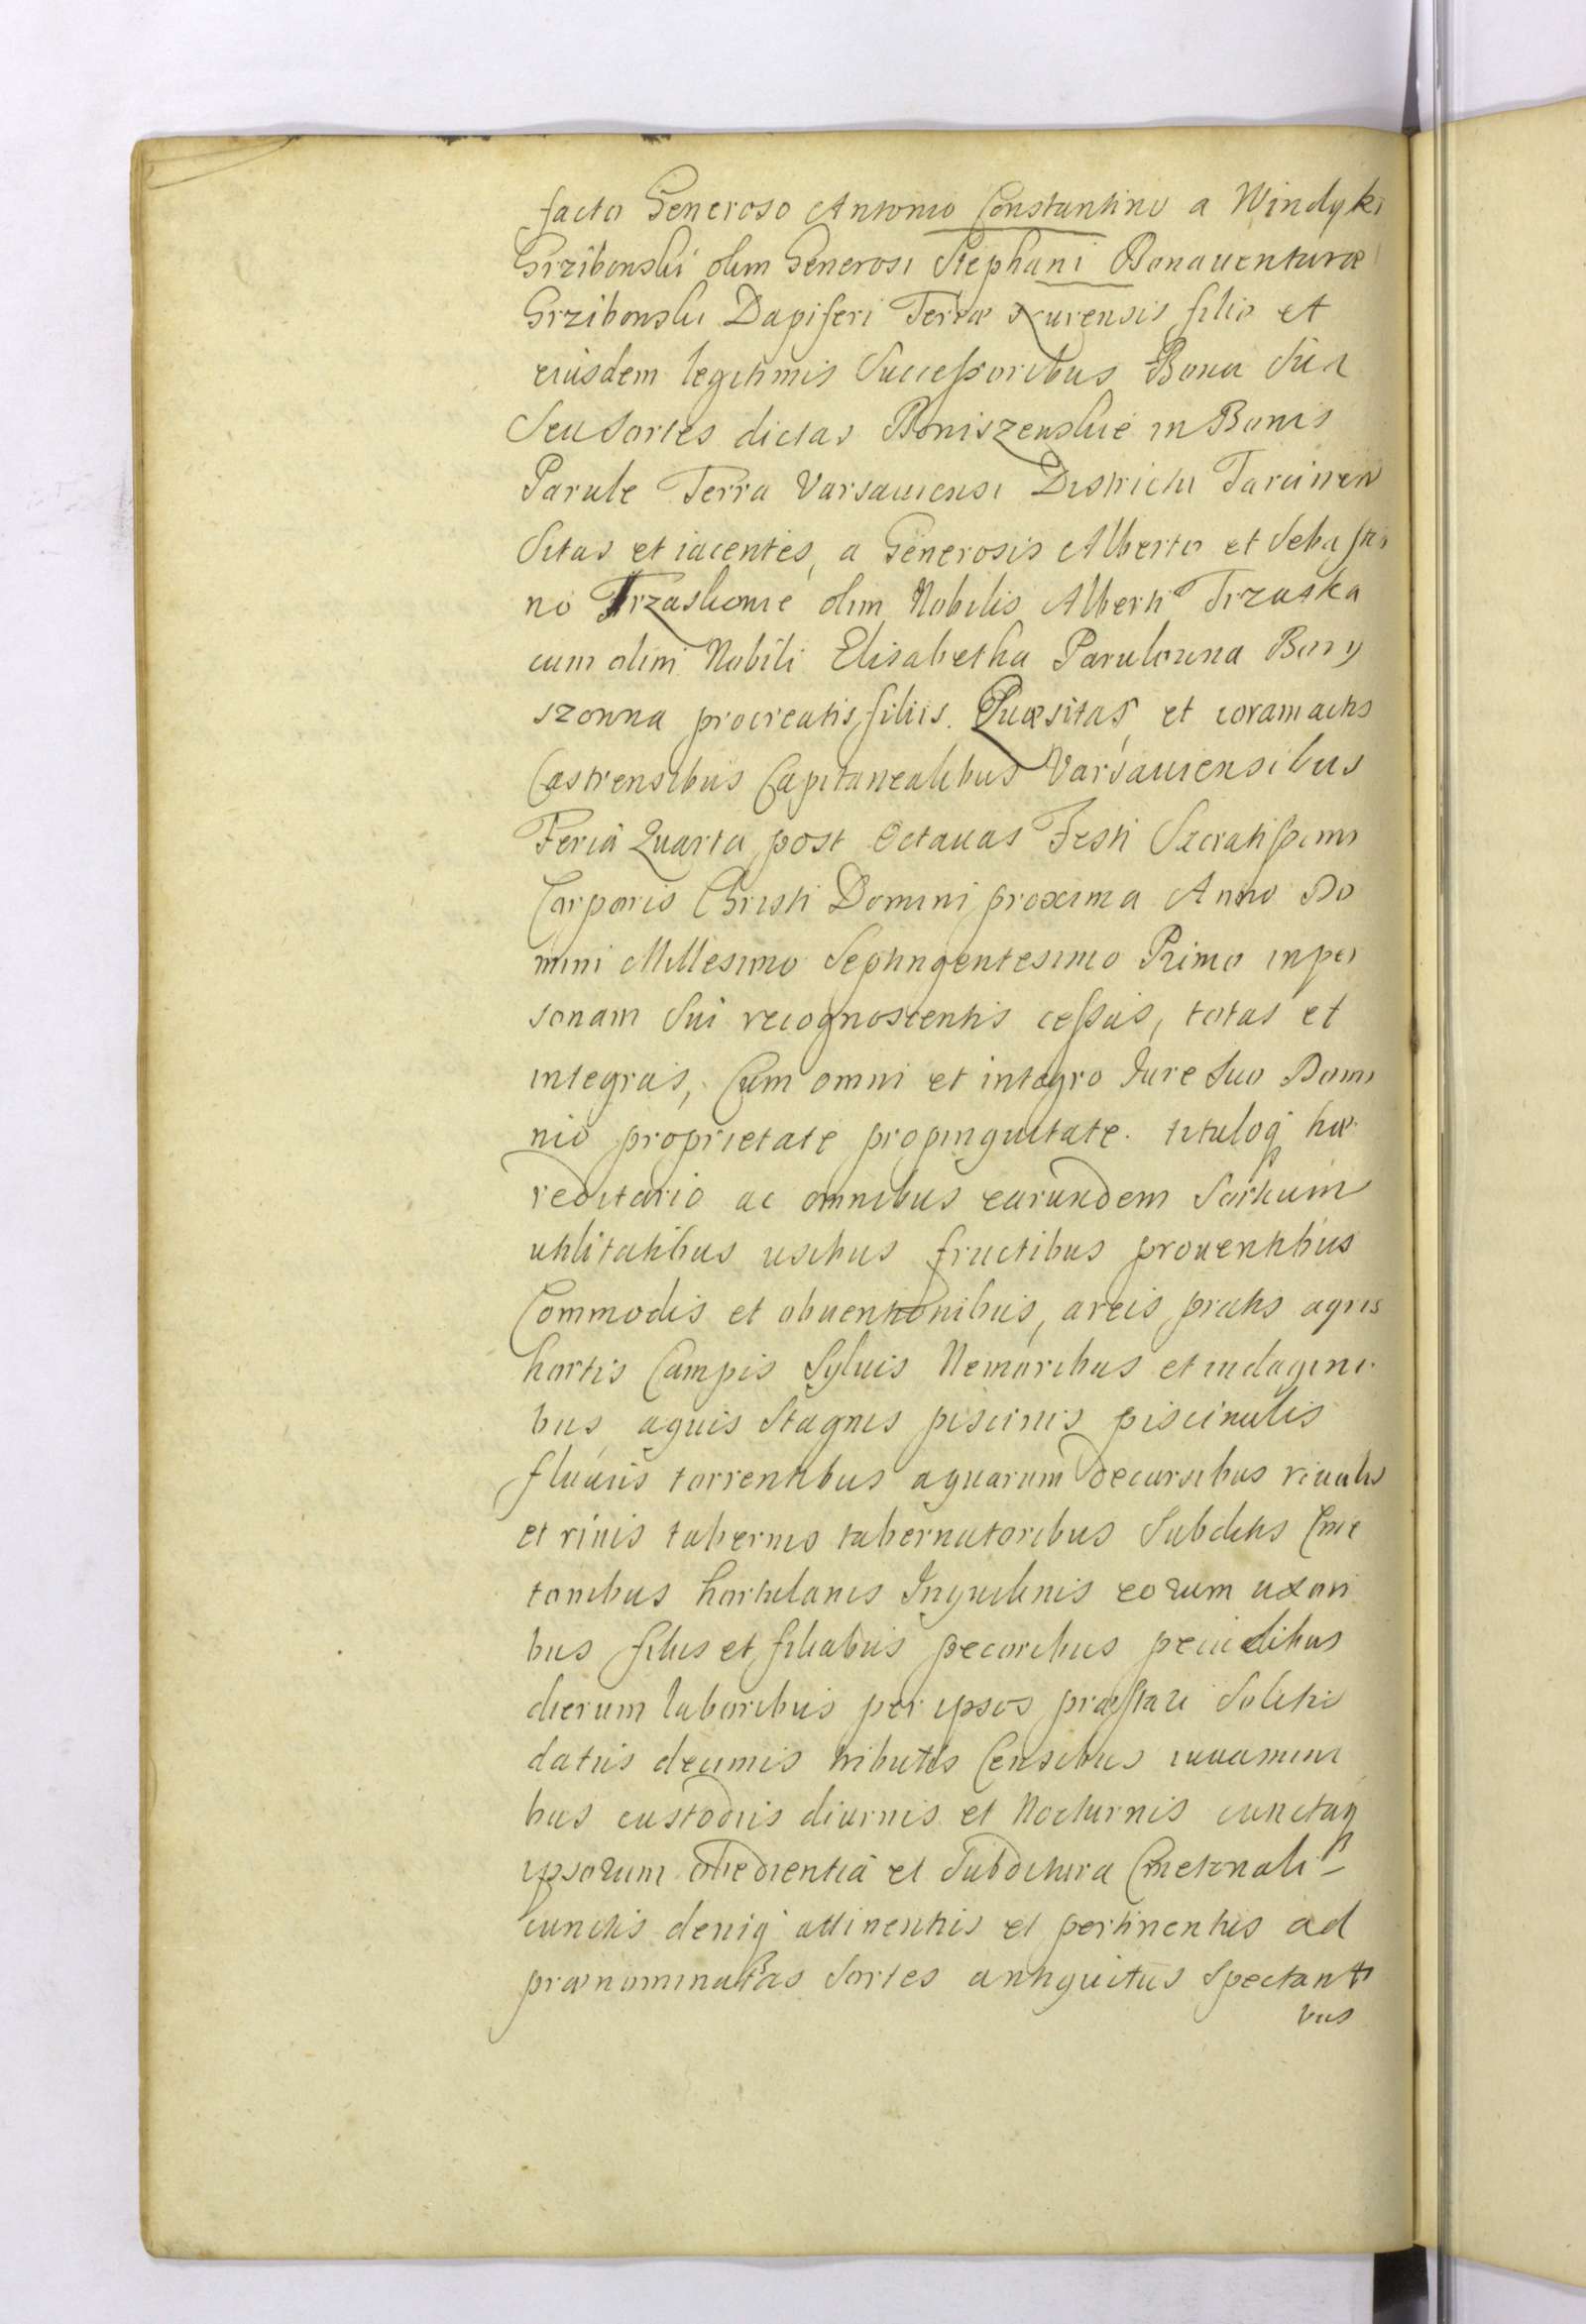 facto Generoso Antonio Constantino a Windyki
Grzibowski olim Generosi Stephani Bonauenturæ
Grzibowski Dapiferi Terræ Nurensis filio et
eiusdem legitimis Successoribus Bona Sua
Seu Sortes dictas Boniszewskie in Bonis
Parule Terra Varsauiensi Districtu Tarcinen
Sitas et iacentes, a Generosis Alberto et Sebastia
no Trzaskowie olim Nobilis Alberti Trzaska
cum olim Nobili Elisabetha Parulowna Bony
szowna procreatis filiis. Quæsitas, et coram actis
Castrensibus Capitanealibus Varsauiensibus
Feria Quarta post Octauas Festi Sacratissimi
Corporis Christi Domini proxima Anno Do
mini Millesimo Septingentesimo Primo in per
sonam Sui recognoscentis cessas, totas et
integras, Cum omni et integro Iure Suo Domi
nio proprietate propinquitate. tituloq hæ
reditario ac omnibus earundem Sortium
utilitatibus usibus fructibus prouentibus
Commodis et obuentionibus, areis pratis agris
hortis Campis Syluis Nemoribus et indagini
bus aquis Stagnis piscinis piscinulis
fluuiis torrentibus aquarum decursibus riualis
et riuis tabernis tabernatoribus Subditis Cme
tonibus hortulanis Inquilinis eorum uxori
bus filiis et filiabus pecoribus pecudibus
dierum laboribus per ipsos præstari Solitis
datiis decimis tributis Censibus iuuamini
bus custodiis diurnis et Nocturnis cunctaq
ipsorum obedientia et Subditura Cmetonali
cunctis deniq attinentiis et pertinentiis ad
prænominatas Sortes antiquitus Spectanti
bus